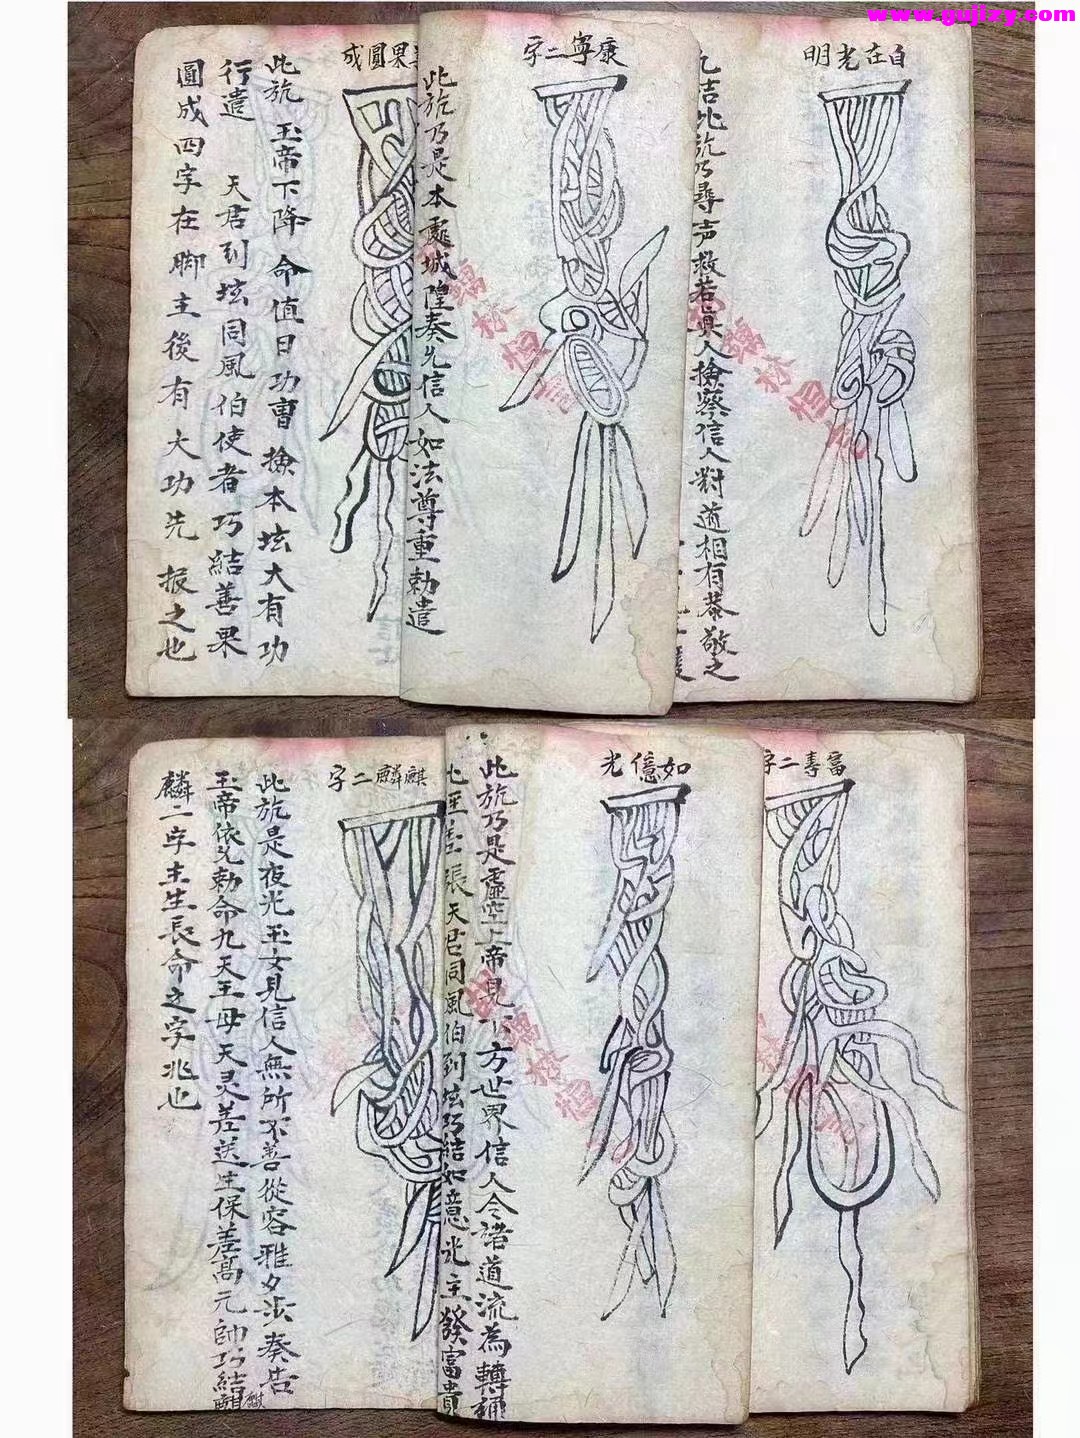 www.gujizy.com
自在光明
尋声救苦真人撿察信人對道相有恭敬之
康寧二字
此旂乃是本處城隍奏允信人如法尊重勅遣
果圓成
此旂 玉帝下降命值日功曹撿本坛大有功
行遣 天君到坛同風伯使者巧結善果
圓成四字在脚主後有大功先报之也
富壽二字
如億光
此旂乃是虛空上帝見下方世界信人令諸道流為轉補
張天君同風伯到坛巧結如意光主發富貴
麒麟二字
此旂是夜光玉女見信人無所不善從容雅夕步奏告
玉帝依允勅命九天王母天灵差送生保差高元帥巧結麒
麟二字主生長命之字兆也